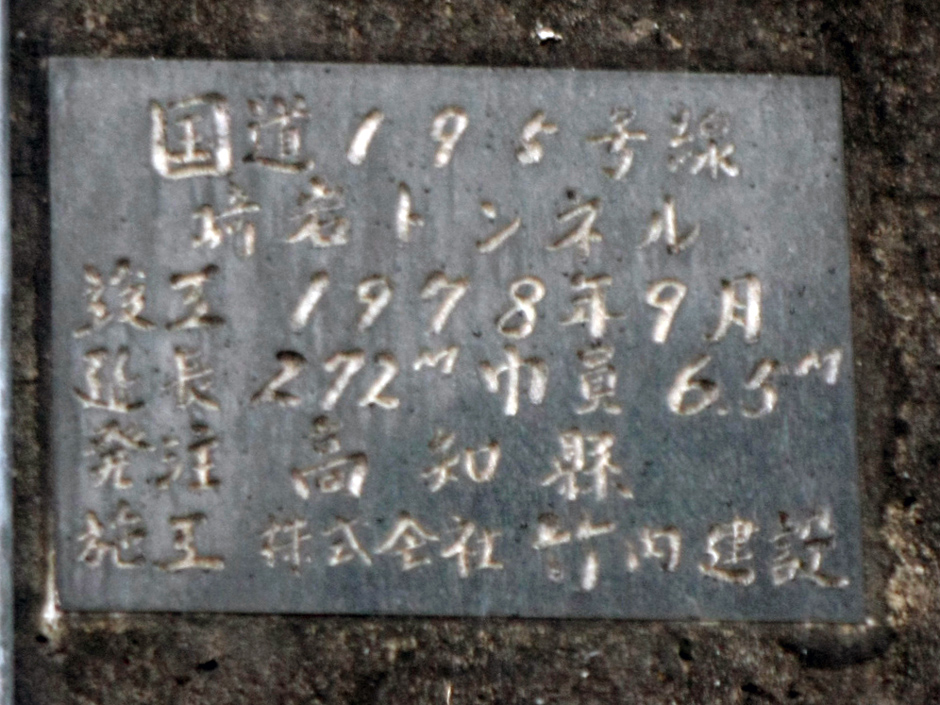 国道195号線
崎岩トンネル
竣工 1978年9月
延長 272M 巾員 6.5M
発注 高知縣
施工 株式会社 竹内建設